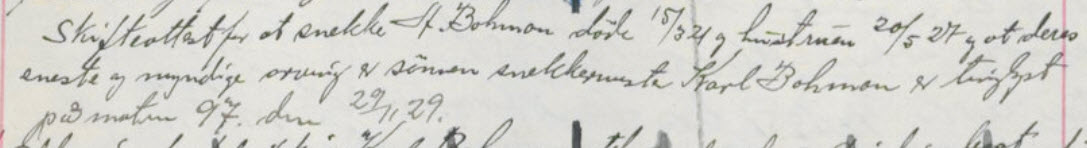 Skifteattest for at snekker A. Bohman døde 15/3 21 og hustruen 20/5 27 og at deres
eneste og myndige arving er sønnen snekkermester Karl Bohman er tinglyst
på matr. 97. den 29/11 29.